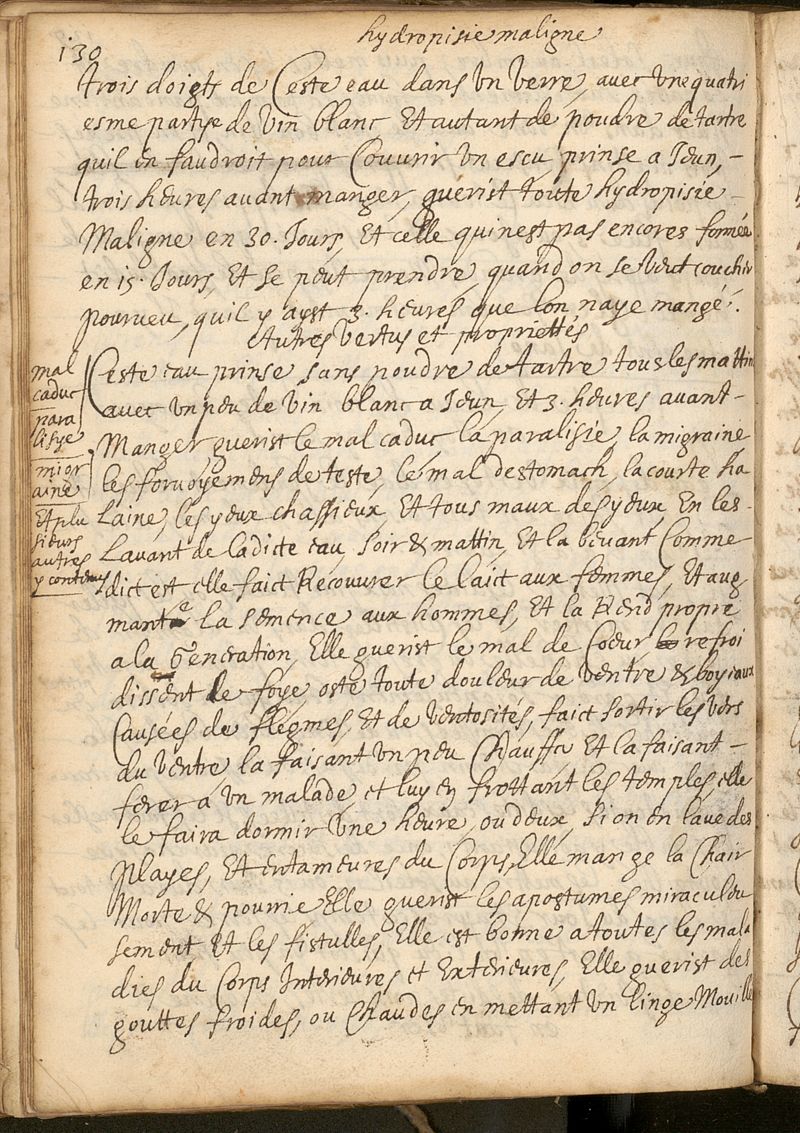 130
hydropisie maligne
trois doigts de Ceste eau dans Un verre, avec Une quatri
esme partye de Vin blanc, Et autant de poudre de tartre
quil en faudroit pour Couvrir Un escu, prinse a Jeun, –
trois heures avant manger, guerist toute hydropisie –
Maligne en 30. Jours, Et celle qui nest pas encores formée
en 15. Jours, Et se peut prendre, quand on se Veut coucher
pourveu, quil y ayst 3. heures que lon naye mangé.
Autres Vertus et propriettés
mal
caduc
para
lisye
migr
aine
Et plu
sieurs
autres
y contenus
Ceste eau prinse sans poudre de tartre tous les mattins
avec Un peu de Vin blanc a Jeun, Et 3. heures avant –
Manger guerist le mal caduc la paralisie, la migraine
les forvoyemens de teste, le mal destomach, la courte ha
Laine, les yeux chassieux, Et tous maux des yeux, En les
Lavant de ladicte eau, soir & mattin, Et la beuvant Comme
dict est elle faict Recouvrer le laict aux femmes, Et aug
mante la semence aux hommes, Et la Rend propre
a la Generation, Elle guerist le mal de Coeur refroi
dissent le foye oste toute douleur de ventre & boyeaux
Causées de flegmes, Et de ventosités, faict sortir les vers
du ventre la faisant Un peu Chauffer Et la faisant –
ferer a Un malade, et luy en frottant les temples, elle
le faira dormir Une heure, ou deux, Si on en lave des
playes, Et entameures du Corps, Elle mange la Chair
Morte & pourrie Elle guerist les apostumes miraculeu
sement Et les fistulles, Elle est bonne a toutes les mala
dies du Corps Interieures et Exterieures, Elle guerist des
gouttes froides, ou Chaudes en mettant Un linge Mouillé